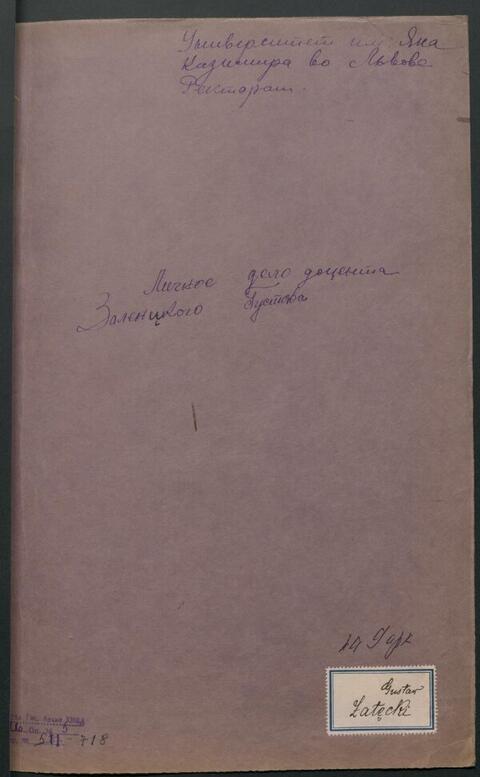 Университет им Яна
Казимира во Львове
Ректорат.
Личное дело доцента
Заленцкого Густава
Gustav
Załęcki
Оп. № 5
511 - 718